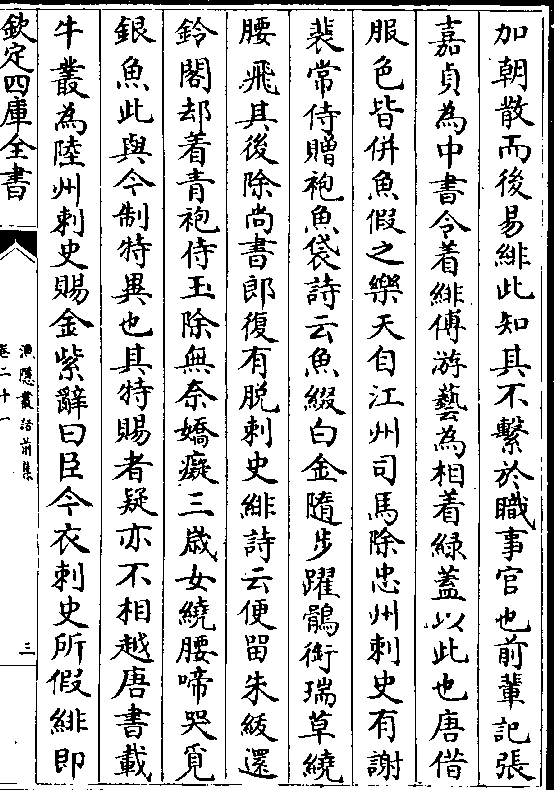 加朝散而後易緋此知其不繫於職事官也前輩記張
嘉貞為中書令着緋傅游藝為相着緑葢以此也唐借
服色皆併魚假之樂天自江州司馬除忠州刺史有謝
裴常侍贈袍魚袋詩云魚綴白金隨步躍鶻銜瑞草繞
腰飛其後除尚書郎復有脱刺史緋詩云便留朱紱還
鈴閣却着青袍侍玉除無奈嬌癡三歲女繞腰啼哭覓
銀魚此與今制特異也其特賜者疑亦不相越唐書載
牛叢為陸州刺史賜金紫辭曰臣今衣刺史所假緋即
欽定四庫全書
漁隱叢話前集
卷二十一
三